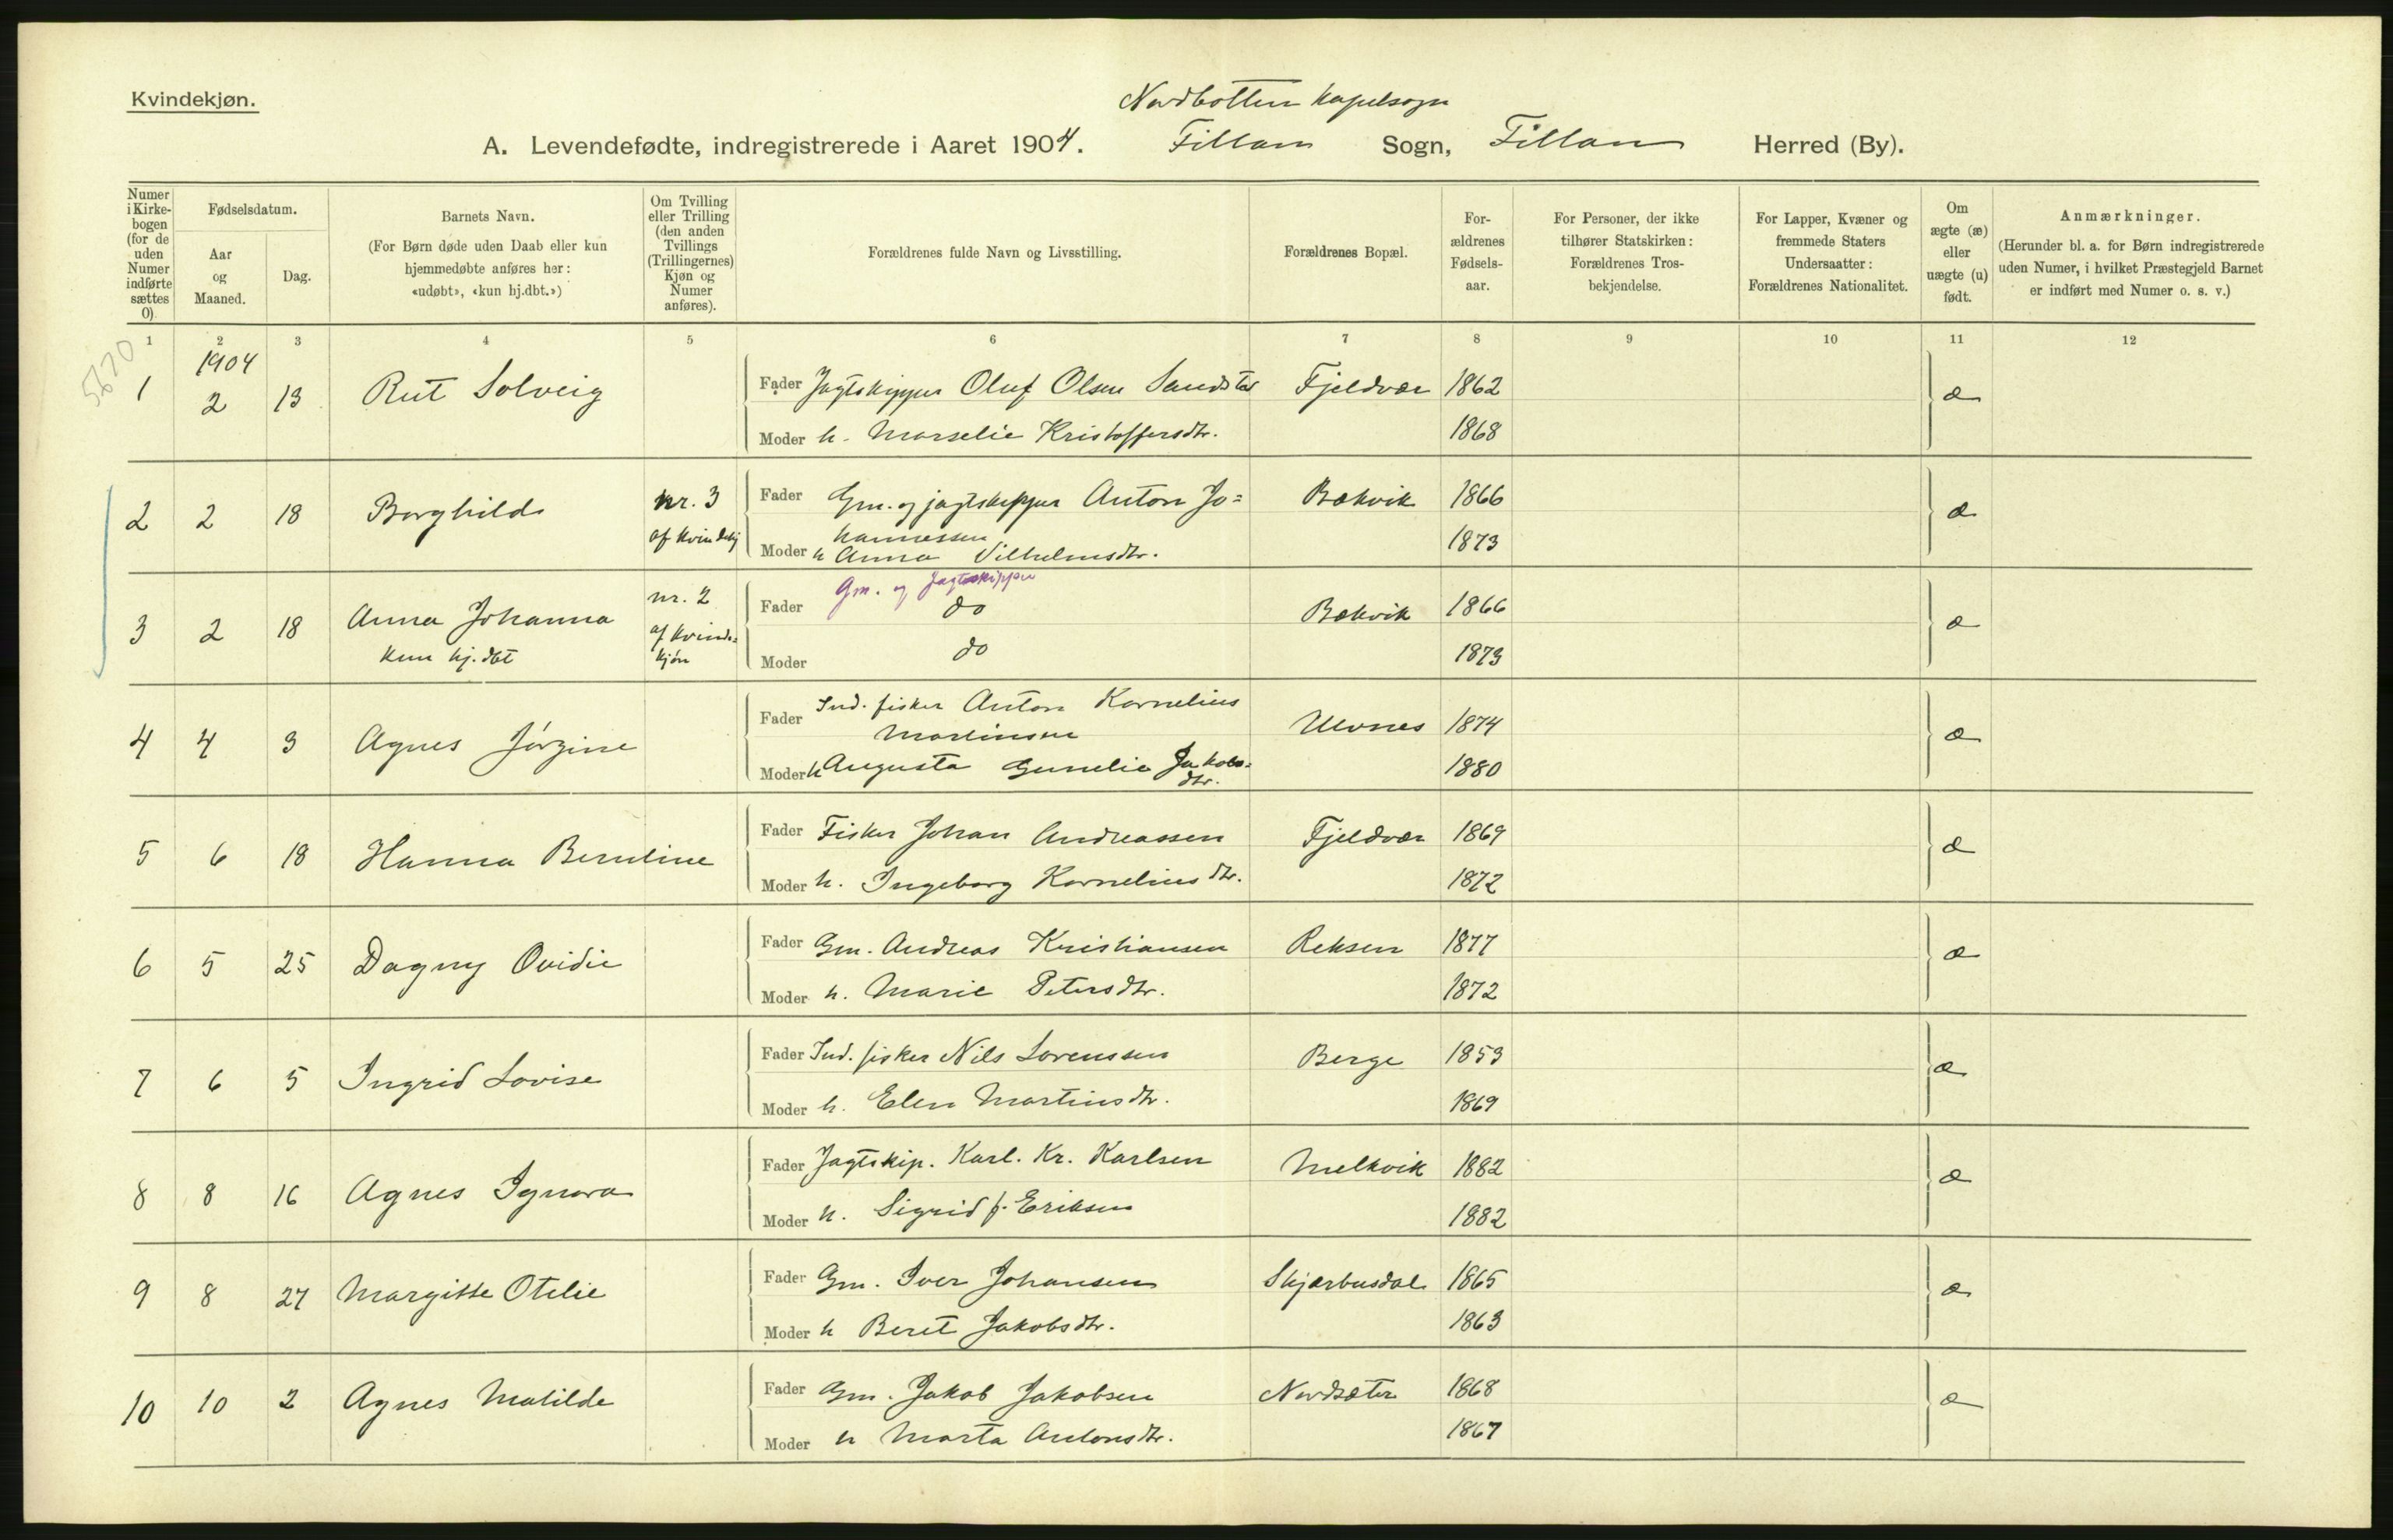 Kvindekjøn.
Nordbotten kapelsogn
A. Levendefødte, indregistrerede i Aaret 1904. Fillan Sogn, Fillan Herred (By).
Numer i Kirkebogen (for de uden Numer indførte sættes 0).
Fødselsdatum.
Aar og Maaned.
Dag.
Barnets Navn.
(For Børn døde uden Daab eller kun hjemmedøbte anføres her: «udøbt», «kun hj.dbt.»)
Om Tvilling eller Trilling (den anden Tvillings (Trillingernes) Kjøn og Numer anføres).
Forældrenes fulde Navn og Livsstilling.
Forældrenes Bopæl.
Forældrenes Fødselsaar.
For Personer, der ikke tilhører Statskirken: Forældrenes Trosbekjendelse.
For Lapper, Kvæner og fremmede Staters Undersaatter: Forældrenes Nationalitet.
Om ægte (æ) eller uægte (u) født.
Anmærkninger.
(Herunder bl. a. for Børn indregistrerede uden Numer, i hvilket Præstegjeld Barnet er indført med Numer o. s. v.)
1 2 3 4 5 6 7 8 9 10 11 12
5620
1904
1 2 13 Rut Solveig Fader Jagtskipper Oluf Olsen Fjeldvær 1862 æ
Moder h. Marselie Kristoffersdtr. 1868
2 2 18 Borghild nr. 3 af kvindekj Fader Gm. og jagtskipper Anton Jo= Bækvik 1866 æ
hannessen
Moder h Anna Vilhelmsdtr. 1873
Gm. og Jagtskipper
3 2 18 Anna Johanna nr. 2 af kvinde= kjøn Fader do Bækvik 1866 æ
kun hj. dbt
Moder do 1873
4 4 3 Agnes Jørgine Fader Ind. fisker Anton Kornelius Ulvnes 1874 æ
Martinsen
Moder h Augusta Gunelie Jakobs= dtr. 1880
5 6 18 Hanna Berntine Fader Fisker Johan Andreassen Fjeldvær 1869 æ
Moder h. Ingeborg Korneliusdtr. 1872
6 5 25 Dagny Ovidie Fader Gm. Andreas Kristiansen Reksen 1877 æ
Moder h. Marie Petersdtr. 1872
7 6 5 Ingrid Lovise Fader Ind. fisker Nils Lorenssen Berge 1853 æ
Moder h. Elen Martinsdtr. 1869
8 8 16 Agnes Ignora Fader Jagtskip. Karl. Kr. Karlsen Melkvik 1882 æ
Moder h. Sigrid f. Eriksen 1882
9 8 27 Margitte Otelie Fader Gm. Iver Johansen Skjærbusdal 1865 æ
Moder h Beret Jakobsdtr. 1863
10 10 2 Agnes Matilde Fader Gm. Jakob Jakobsen Nordsæter 1868 æ
Moder h Marta Antonsdtr. 1867